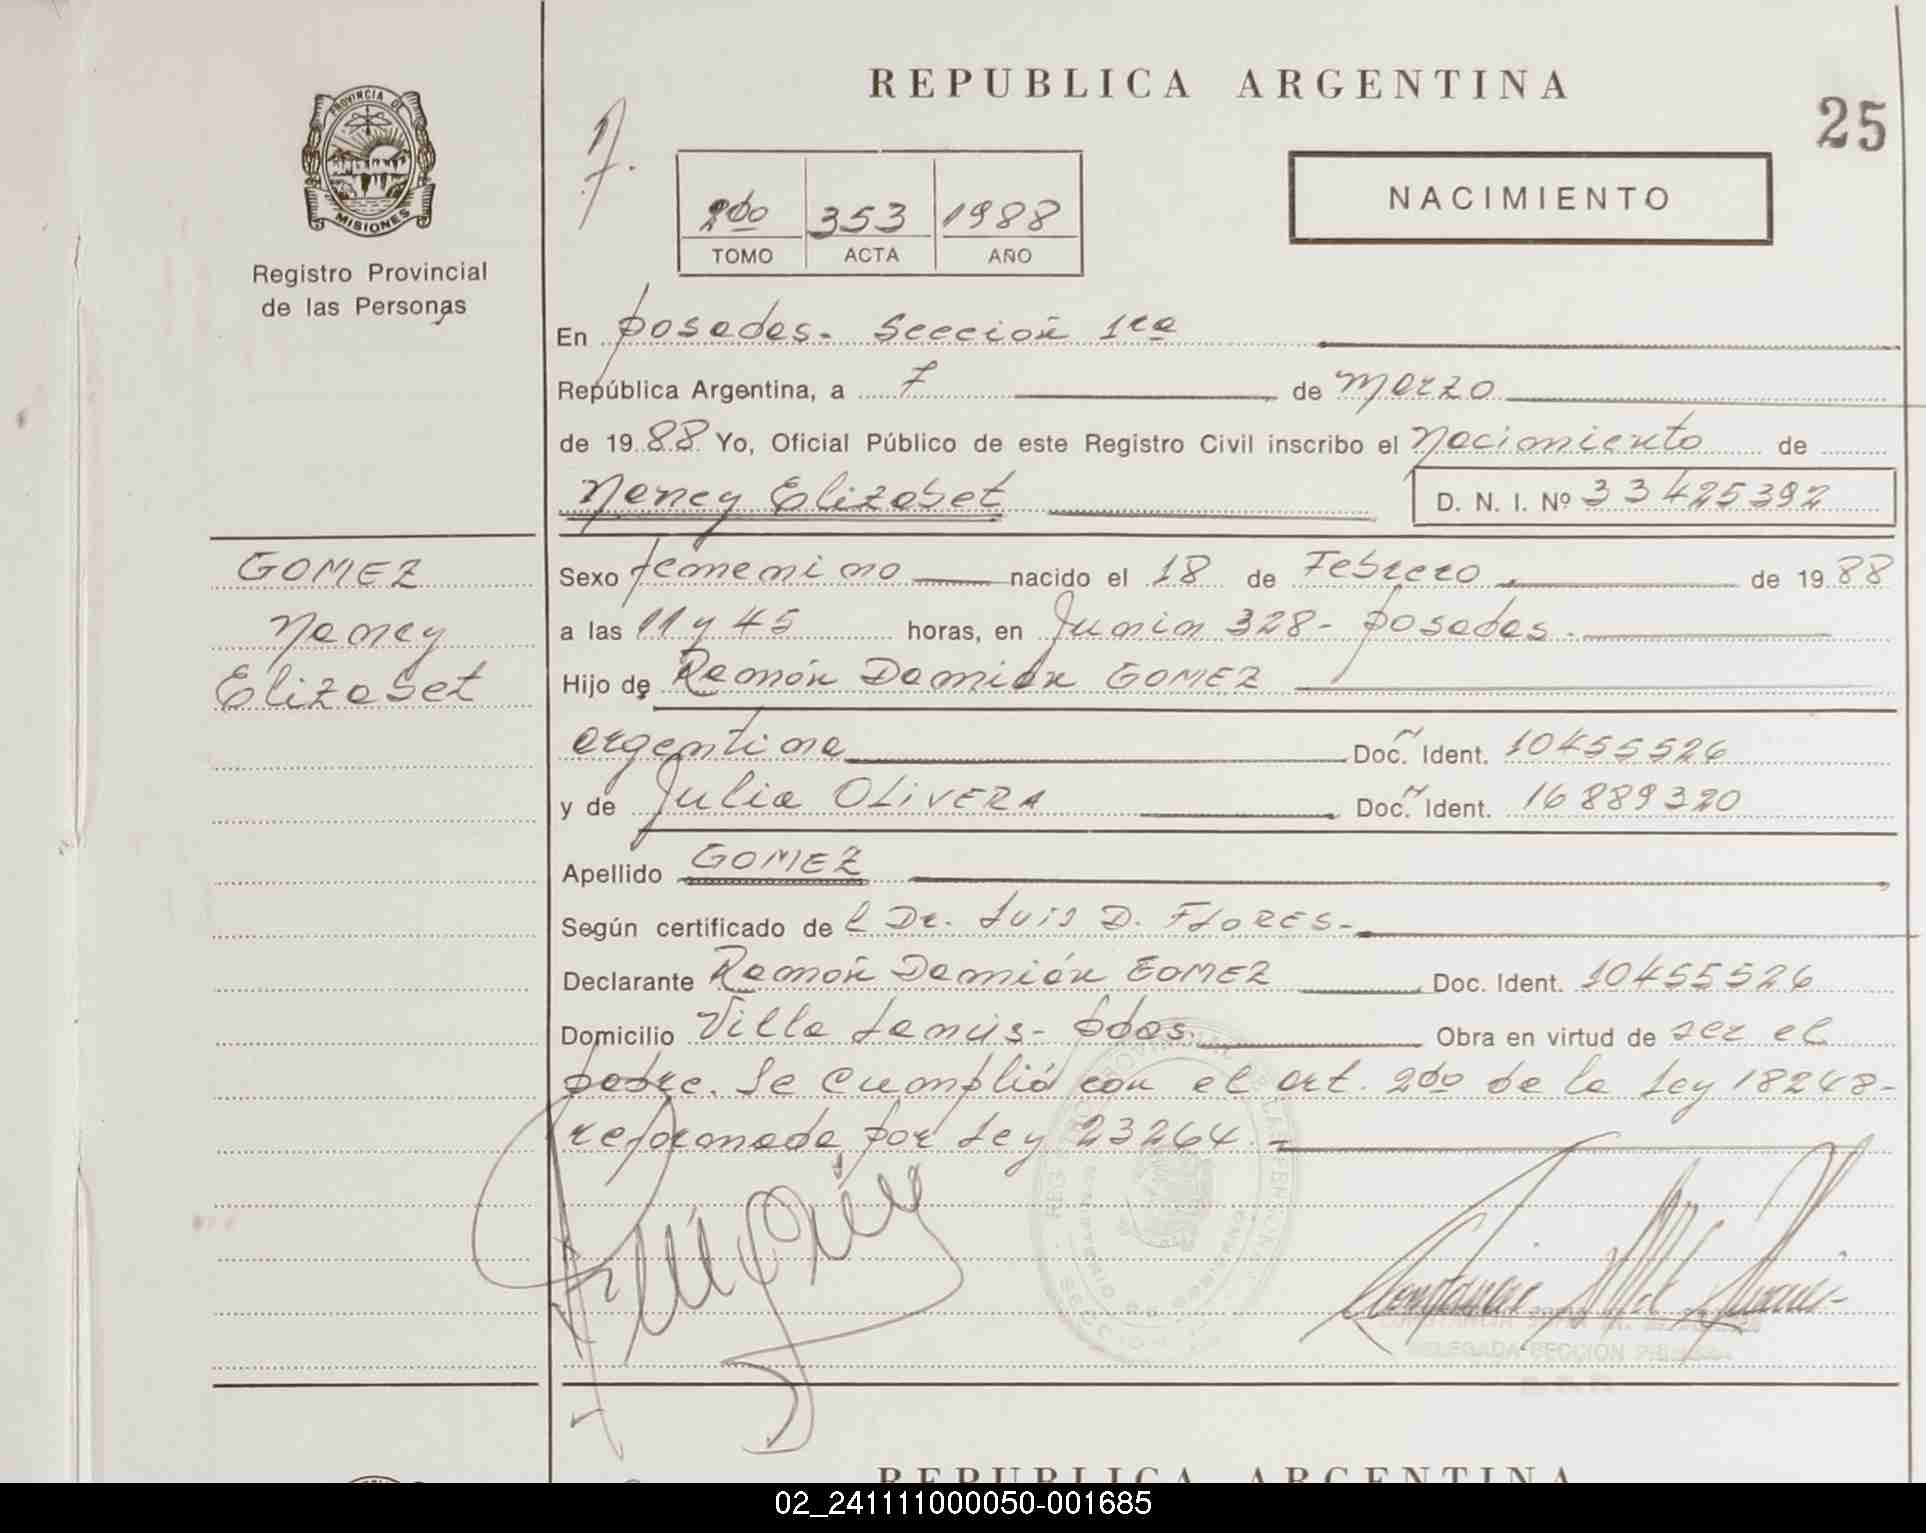 REPUBLICA ARGENTINA
25
PROVINCIA DE
MISIONES
Registro Provincial
de las Personas
7.
2do 353 1988
TOMO ACTA AÑO
NACIMIENTO
En posadas. Sección 1ra
República Argentina, a 7 de marzo
de 1988 Yo, Oficial Público de este Registro Civil inscribo el Nacimiento de
Nancy Elizabet D. N. I. Nº 33425392
GOMEZ
Nancy
Elizabet
Sexo femenino nacido el 18 de Febrero de 1988
a las 11 y 45 horas, en Junin 328- posadas.
Hijo de Ramón Damián GOMEZ
argentina Doc. Ident. 10455526
y de Julia OLIVERA Doc. Ident. 16889320
Apellido GOMEZ
Según certificado de l Dr. Luis D. FLORES-
Declarante Ramón Damián GOMEZ Doc. Ident. 10455526
Domicilio Villa Lanús- pdas. Obra en virtud de ser el
padre. Se cumplió con el art. 2do de la Ley 18248-
reformada por Ley 23264.-
DELEGADA SECCION
REPUBLICA ARGENTINA
02_241111000050-001685